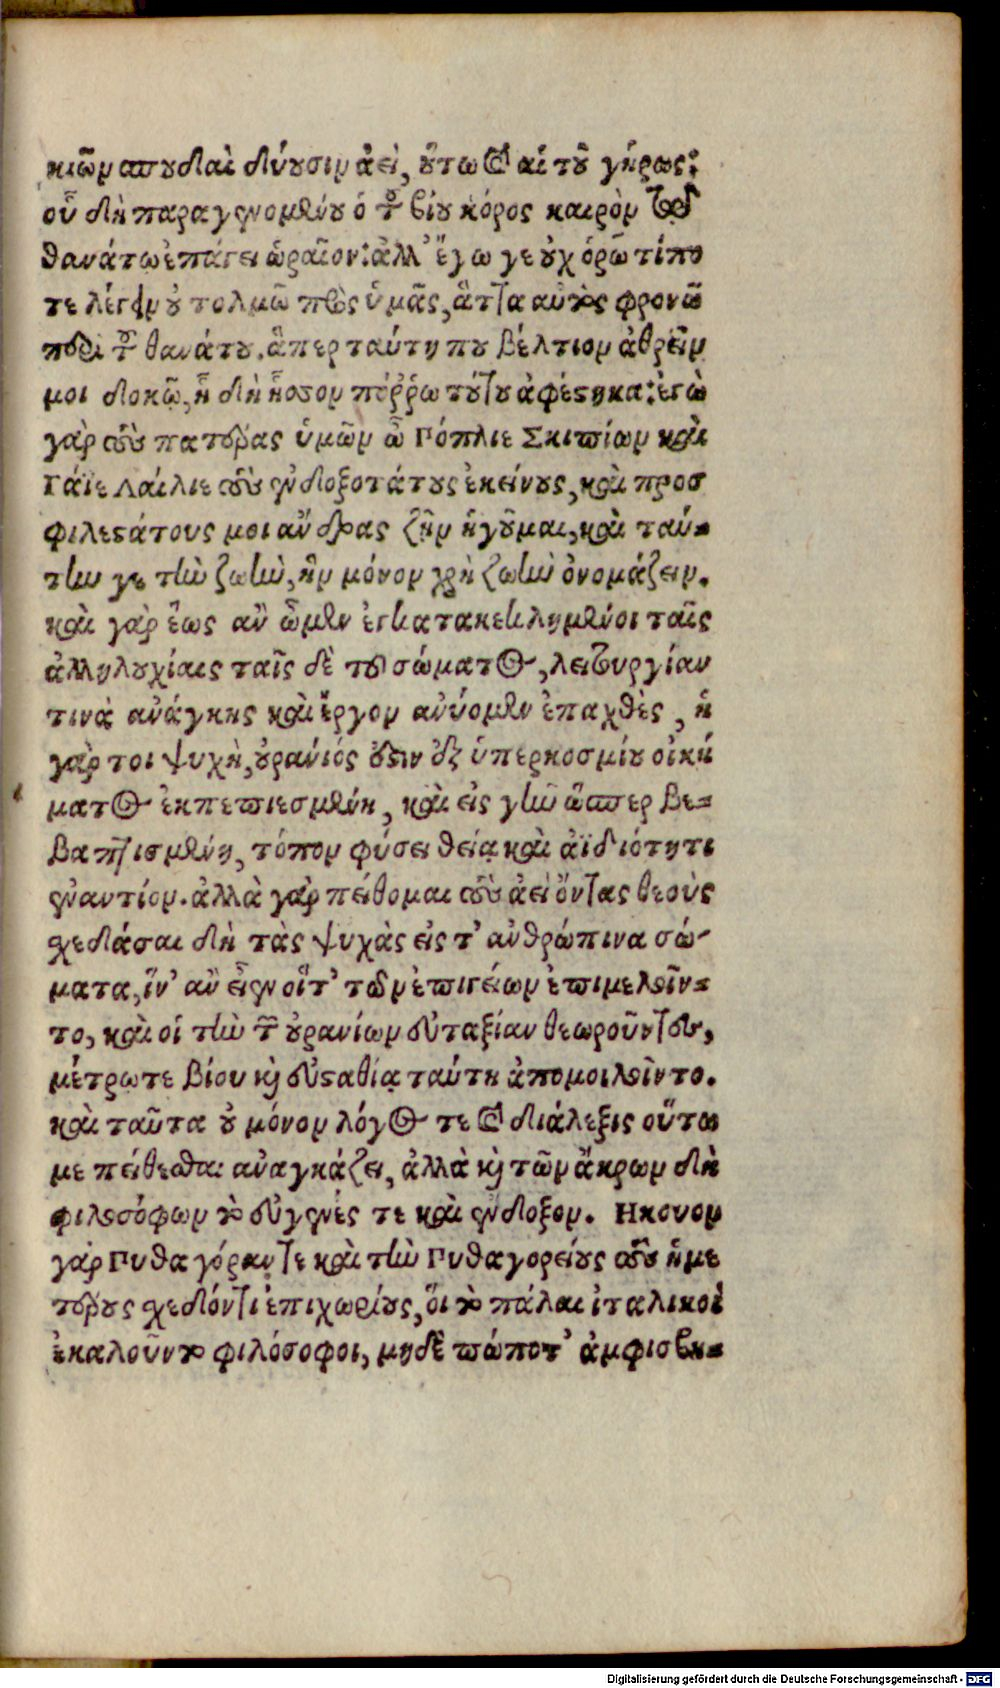 κιῶν σπουδαὶ δύουσιν ἀεὶ, οὕτω καὶ αἱ τοῦ γήρως:
οὗ δὴ παραγινομένου ὁ τοῦ βίου κόρος καιρὸν τοῦ
θανάτω ἐπάγει ὡραῖον: ἀλλ' ἔγωγε οὐχ ὁρῶ τί πο
τε λέγειν οὐ τολμῶ πρὸς ὑμᾶς, ἅττα αὐτὸς φρονῶ
περὶ τοῦ θανάτου. ἅπερ ταύτῃ που βέλτιον ἀθρεῖν
μοι δοκῶ, ᾗ δὴ ἧσσον πόῤῥω τούτου ἀφέστηκα: ἐγὼ
γὰρ τοὺς πατέρας ὑμῶν ὦ Πόπλιε Σκιπίων καὶ
Γάϊε Λαίλιε τοὺς ἐνδοξοτάτους ἐκείνους, καὶ προσ
φιλεστάτους μοι ἄνδρας ζῆν ἡγοῦμαι, καὶ ταύ-
την γε τὴν ζωὴν, ἣν μόνον χρὴ ζωὴν ὀνομάζειν.
καὶ γὰρ ἕως ἂν ὦμεν ἐγκατακεκλημένοι ταῖς
ἀλληλουχίαις ταῖς δὲ τοῦ σώματος, λειτουργίαν
τινὰ ἀνάγκης καὶ ἔργον ἀνύομεν ἐπαχθὲς, ἡ
γάρ τοι ψυχὴ, οὐράνιός ἐστιν ἐξ ὑπερκοσμίου οἰκή
ματος ἐκπεπιεσμένη, καὶ εἰς γῆν ὥσπερ βε-
βαπτισμένη, τόπον φύσει θείᾳ καὶ ἀϊδιότητι
ἐναντίον. ἀλλὰ γὰρ πείθομαι τοὺς ἀεὶ ὄντας θεοὺς
σχεδάσαι δὴ τὰς ψυχὰς εἰς τ' ἀνθρώπινα σώ-
ματα, ἵν' ἂν εἶεν οἵ τ' τῶν ἐπιγείων ἐπιμελοῖν-
το, καὶ οἱ τὴν τῶν οὐρανίων εὐταξίαν θεωροῦντες,
μέτρῳ τε βίου καὶ εὐσταθίᾳ ταύτῃ ἀπομοιλοῖντο.
καὶ ταῦτα οὐ μόνον λόγος τε καὶ διάλεξις οὕτω
με πείθεσθαι ἀναγκάζει, ἀλλὰ καὶ τῶν ἄκρων δὴ
φιλοσόφων τὸ εὐγενές τε καὶ ἔνδοξον. Ηκουον
γὰρ Πυθαγόραν τε καὶ τὴν Πυθαγορείους τοὺς ἡμε
τέρους σχεδόν τι ἐπιχωρίους, οἳ τὸ πάλαι ἰταλικοὶ
ἐκαλοῦντο φιλόσοφοι, μηδὲ πώποτ' ἀμφισβη-
Digitalisierung gefördert durch die Deutsche Forschungsgemeinschaft - DFG